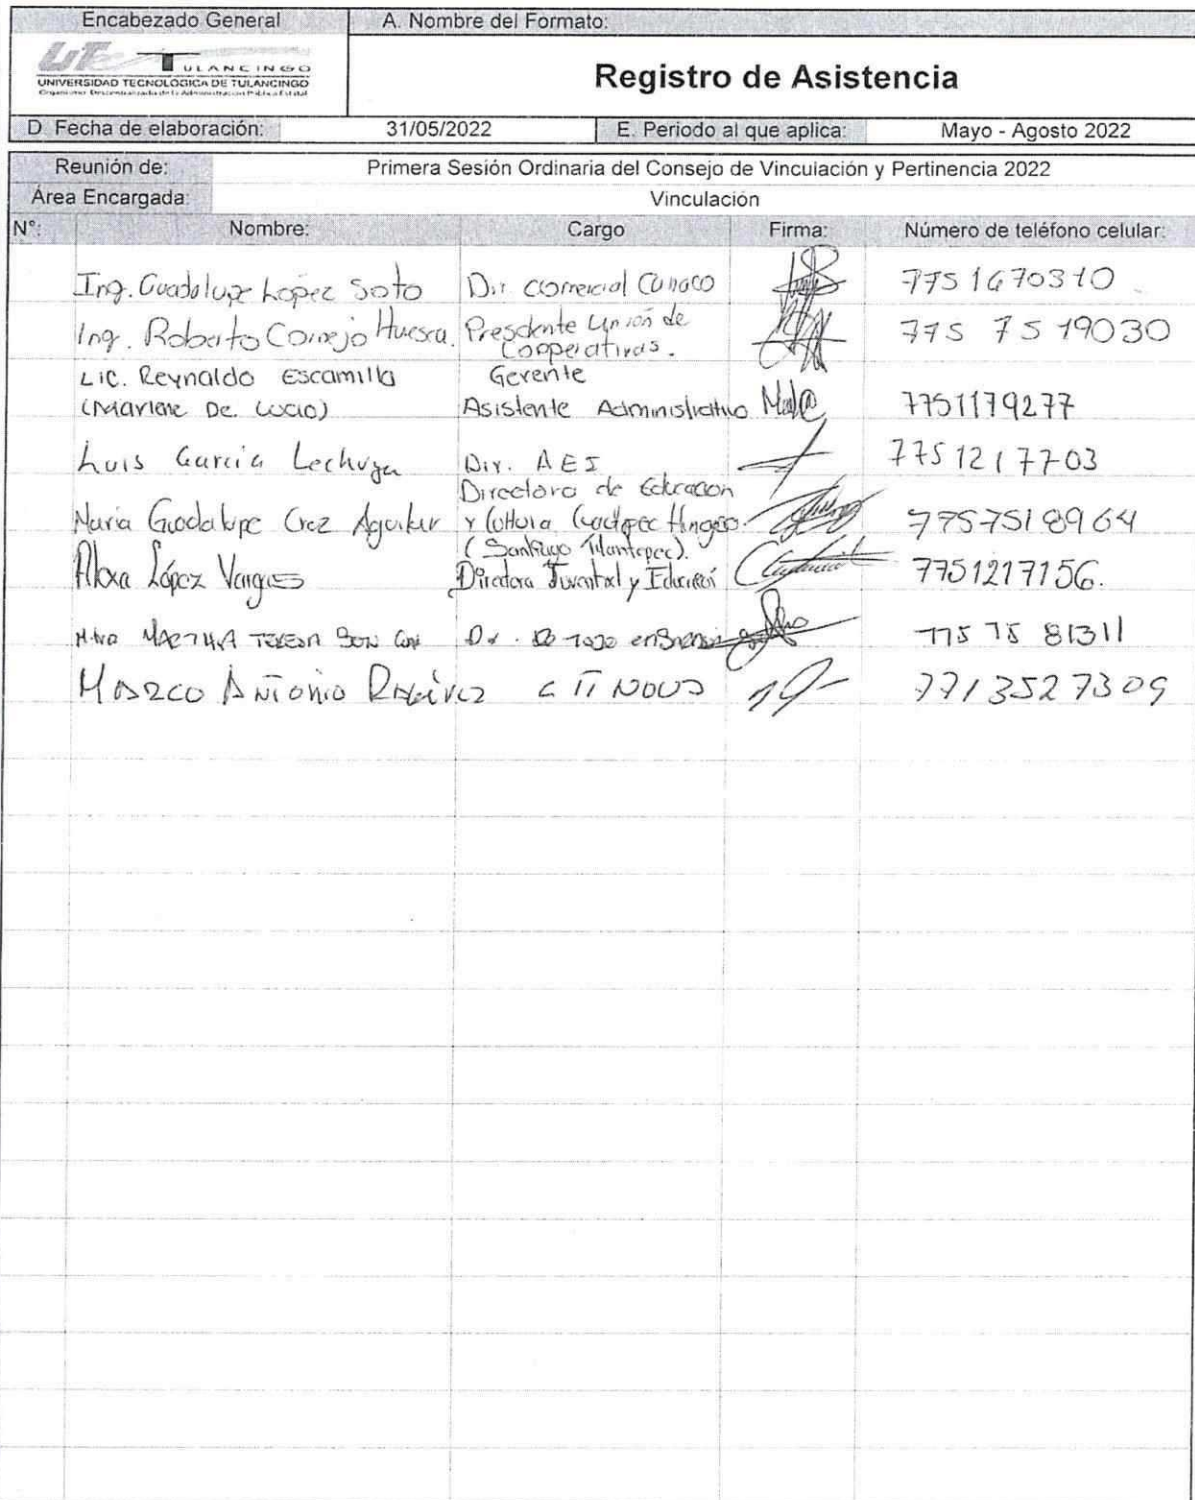 Encabezado General
A. Nombre del Formato:
UT TULANCINGO
UNIVERSIDAD TECNOLÓGICA DE TULANCINGO
Organismo Descentralizado de la Administración Pública Estatal
Registro de Asistencia
D. Fecha de elaboración: 31/05/2022 E. Periodo al que aplica: Mayo - Agosto 2022
Reunión de: Primera Sesión Ordinaria del Consejo de Vinculación y Pertinencia 2022
Área Encargada: Vinculación
N°: Nombre: Cargo Firma: Número de teléfono celular:
Ing. Guadalupe López Soto Dir comercial 7751670310
Ing. Roberto Cornejo Huesca. Presidente Unión de Cooperativas. 775 75 19030
Lic. Reynaldo Escamilla Gerente
(Marlene De Lucio) Asistente Administrativo 7751179277
Luis García Lechuga Dir. AEI 775 1217703
Directora de Educacion
María Guadalupe Cruz Aguilar y Cultura 7757518964
(Santiago Tulantepec).
López Vargas Directora Juventud y Educación 7751217156.
Mtra MARTHA TERESA 775 75 81311
Marco Antonio Ramírez CITNOVA 7713527309